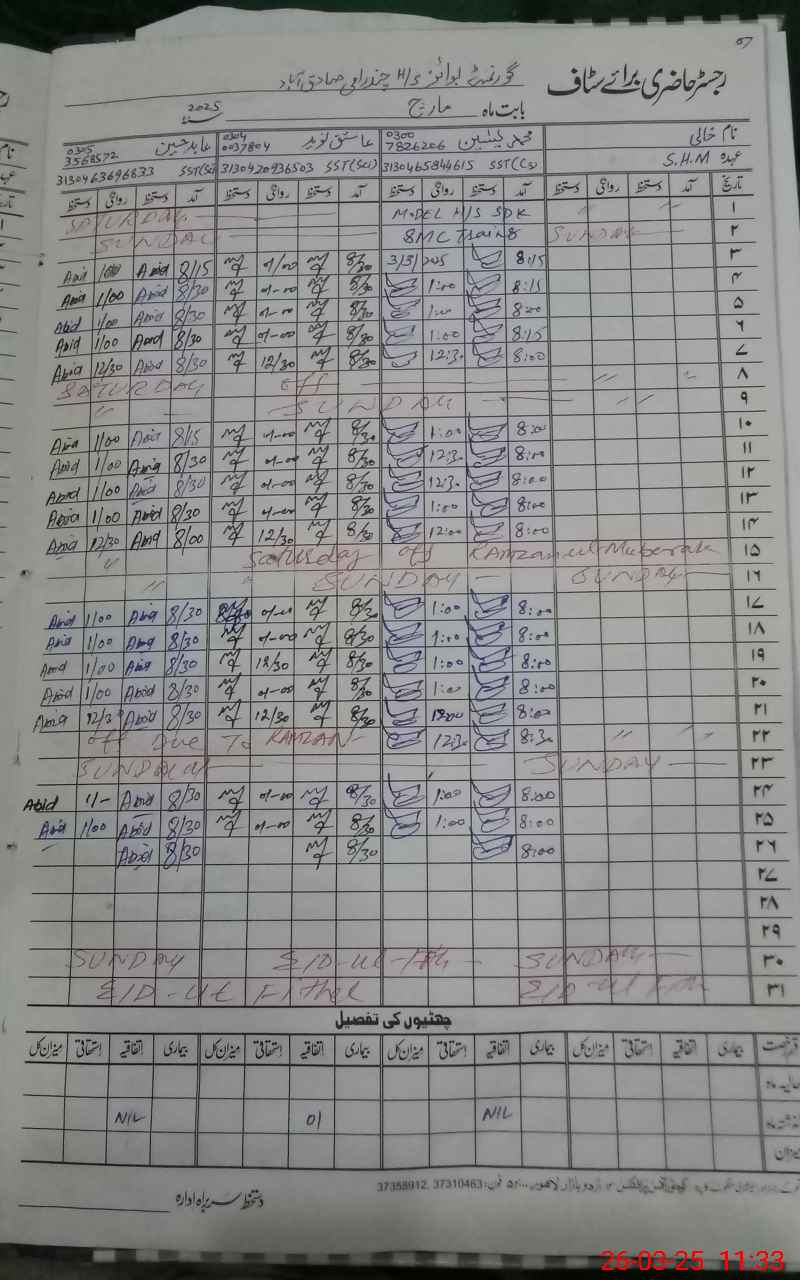 رجسٹر حاضری برائے سٹاف گورنمنٹ بوائز H/S صادق آباد
بابت ماہ مارچ 2025
نام خالی محمد یٰسین 0300 7826206 عاشق نوید 0304 0037804 عابد حسین 0305 3568572
عہدہ S.H.M 3130465844615 SST(Cs) 3130420936503 SST(Sci) 3130463696833 SST(Sci)
تاریخ آمد دستخط روانگی دستخط آمد دستخط روانگی دستخط آمد دستخط روانگی دستخط آمد دستخط روانگی دستخط
۱ MODEL H/S SDK SATURDAY
۲ SUNDAY SMC Training SUNDAY
۳ 8:15 3/3/2025 8/30 01/00 8/15 Abid 1/00 Abid
۴ 8:15 1:00 8/30 01-00 8/30 Abid 1/00 Abid
۵ 8:00 1:00 8/30 01-00 8/30 Abid 1/00 Abid
۶ 8:15 1:00 8/30 01-00 8/30 Abid 1/00 Abid
۷ 8:00 12:30 8/30 12/30 8/30 Abid 12/30 Abid
۸ " " off SATURDAY
۹ " " SUNDAY "
۱۰ 8:00 1:00 8/30 01-00 8/15 Abid 1/00 Abid
۱۱ 8:00 12:30 8/30 01-00 8/30 Abid 1/00 Abid
۱۲ 8:00 12:30 8/30 01-00 8/30 Abid 1/00 Abid
۱۳ 8:00 1:00 8/30 01-00 8/30 Abid 1/00 Abid
۱۴ 8:00 12:00 8/30 12/30 8/00 Abid 12/30 Abid
۱۵ " Saturday off RAMZAN ul Mubarak
۱۶ " " SUNDAY SUNDAY
۱۷ 8:00 1:00 8/30 8/30 Abid 1/00 Abid
۱۸ 8:00 1:00 8/30 01-00 8/30 Abid 1/00 Abid
۱۹ 8:00 1:00 8/30 12/30 8/30 Abid 1/00 Abid
۲۰ 8:00 1:00 8/30 01-00 8/30 Abid 1/00 Abid
۲۱ 8:00 12:00 8/30 12/30 8/30 Abid 12/30 Abid
۲۲ " " 8:30 12:30 off Due To RAMZAN
۲۳ SUNDAY SUNDAY
۲۴ 8:00 1:00 8/30 01-00 8/30 Abid 1/- Abid
۲۵ 8:00 1:00 8/30 01-00 8/30 Abid 1/00 Abid
۲۶ 8:00 8/30 8/30 Abid
۲۷
۲۸
۲۹
۳۰ SUNDAY EID-ul-Fitr SUNDAY
۳۱ EID-ul Fither EID-ul Fitr
چھٹیوں کی تفصیل
قسم رخصت بیماری اتفاقیہ استحقاقی میزان کل بیماری اتفاقیہ استحقاقی میزان کل بیماری اتفاقیہ استحقاقی میزان کل بیماری اتفاقیہ استحقاقی میزان کل
حالیہ ماہ
گذشتہ ماہ NIL 01 NIL
میزان
اردو بازار لاہور فون: 37310463, 37358912
دستخط سربراہ ادارہ
26-03-25 11:33